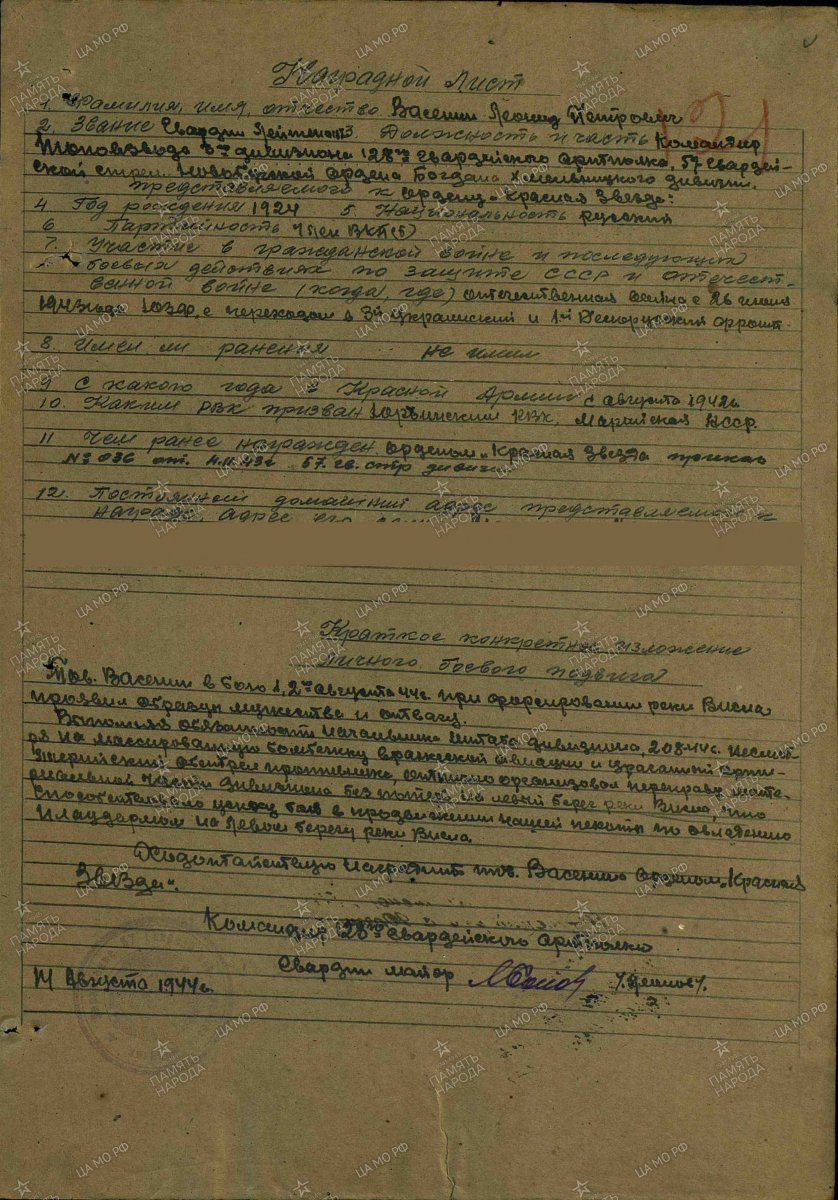 Наградной Лист
1. Фамилия, имя, отчество Васенин Леонид Петрович
2. Звание Гвардии Лейтенант 3. Должность и часть Командир
Топовзвода 3го дивизиона 128го гвардейского артполка, 57 гвардей-
ской стрел. Новобугской ордена Богдана Хмельницкого дивизии.
представляемого к ордену „Красная Звезда:
4 Год рождения 1924 5. Национальность русский
6 Партийность Член ВКП(б)
7. Участие в гражданской войне и последующих
боевых действиях по защите СССР и отечест-
венной войне (когда, где) отечественная война с 26 июня
1943 года ЮЗФ, с переходом в 3й Украинский и 1й Белорусский фронт.
8. Имел ли ранения не имел
9 С какого года в Красной Армии с августа 1942г.
10. Каким РВК призван Юрьинский РВК, Марийская АССР.
11 Чем ранее награжден орденом „Красная Звезда приказ
№ 036 от 57. гв. стр дивизии
12. Постоянный домашний адрес представляемого к
награде, адрес его
Краткое конкретное изложение
личного боевого подвига
Тов. Васенин в бою 1, 2го августа 44г. при форсировании реки Висла
проявил образцы мужества и отваги.
Выполняя обязанности начальника штаба дивизиона, 2.08.44г. несмот-
ря на массированную бомбежку вражеской авиации и ураганный арти-
лерийский обстрел противника, отлично организовал переправу мате-
риальной части дивизиона без потерь на левый берег реки Висла, что
способствовало успеху боя в продвижении нашей пехоты по овладению
плацдармом на левом берегу реки Висла.
Ходотайствую наградить тов. Васенина орденом „Красная
Звезда".
Командир 128го гвардейского Артполка
Гвардии майор
Августа 1944г.
ПАМЯТЬ НАРОДА
ЦАМО.РФ